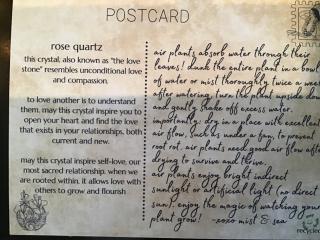 POSTCARD
rose quartz
this crystal, also known as "the love
stone" resembles unconditional love
and compassion.
to love another is to understand
them. may this crystal inspire you to
open your heart and find the love
that exists in your relationships, both
current and new.
may this crystal inspire self-love, our
most sacred relationship. when we
are rooted within, it allows love with
others to grow and flourish
air plants absorb water through their
leaves! dunk the entire plant in a bowl
of water or mist thoroughly twice a week.
after watering, turn the plant upside down
and gently shake off excess water.
importantly: dry in a place with excellent
air flow, such as under a fan, to prevent
root rot. air plants need good air flow after
drying to survive and thrive.
air plants enjoy bright indirect
sunlight or artificial light (no direct
sun). enjoy the magic of watching your
plant grow! -xoxo mist & sea
recycled